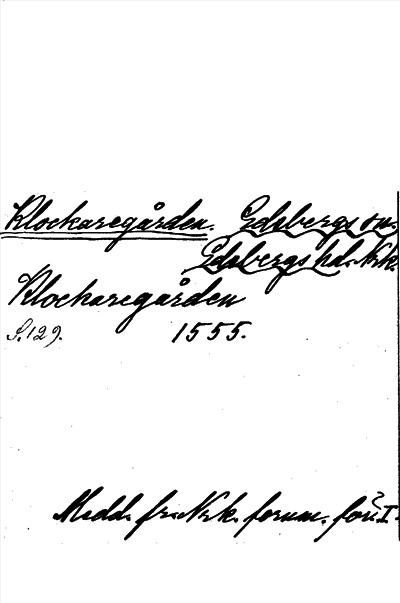 Klockaregården. Edsbergs sn.
Edsbergs hd. Nrk.
Klockaregården
S. 129. 1555.
Medd. fr. Nrk. fornm. för. I.